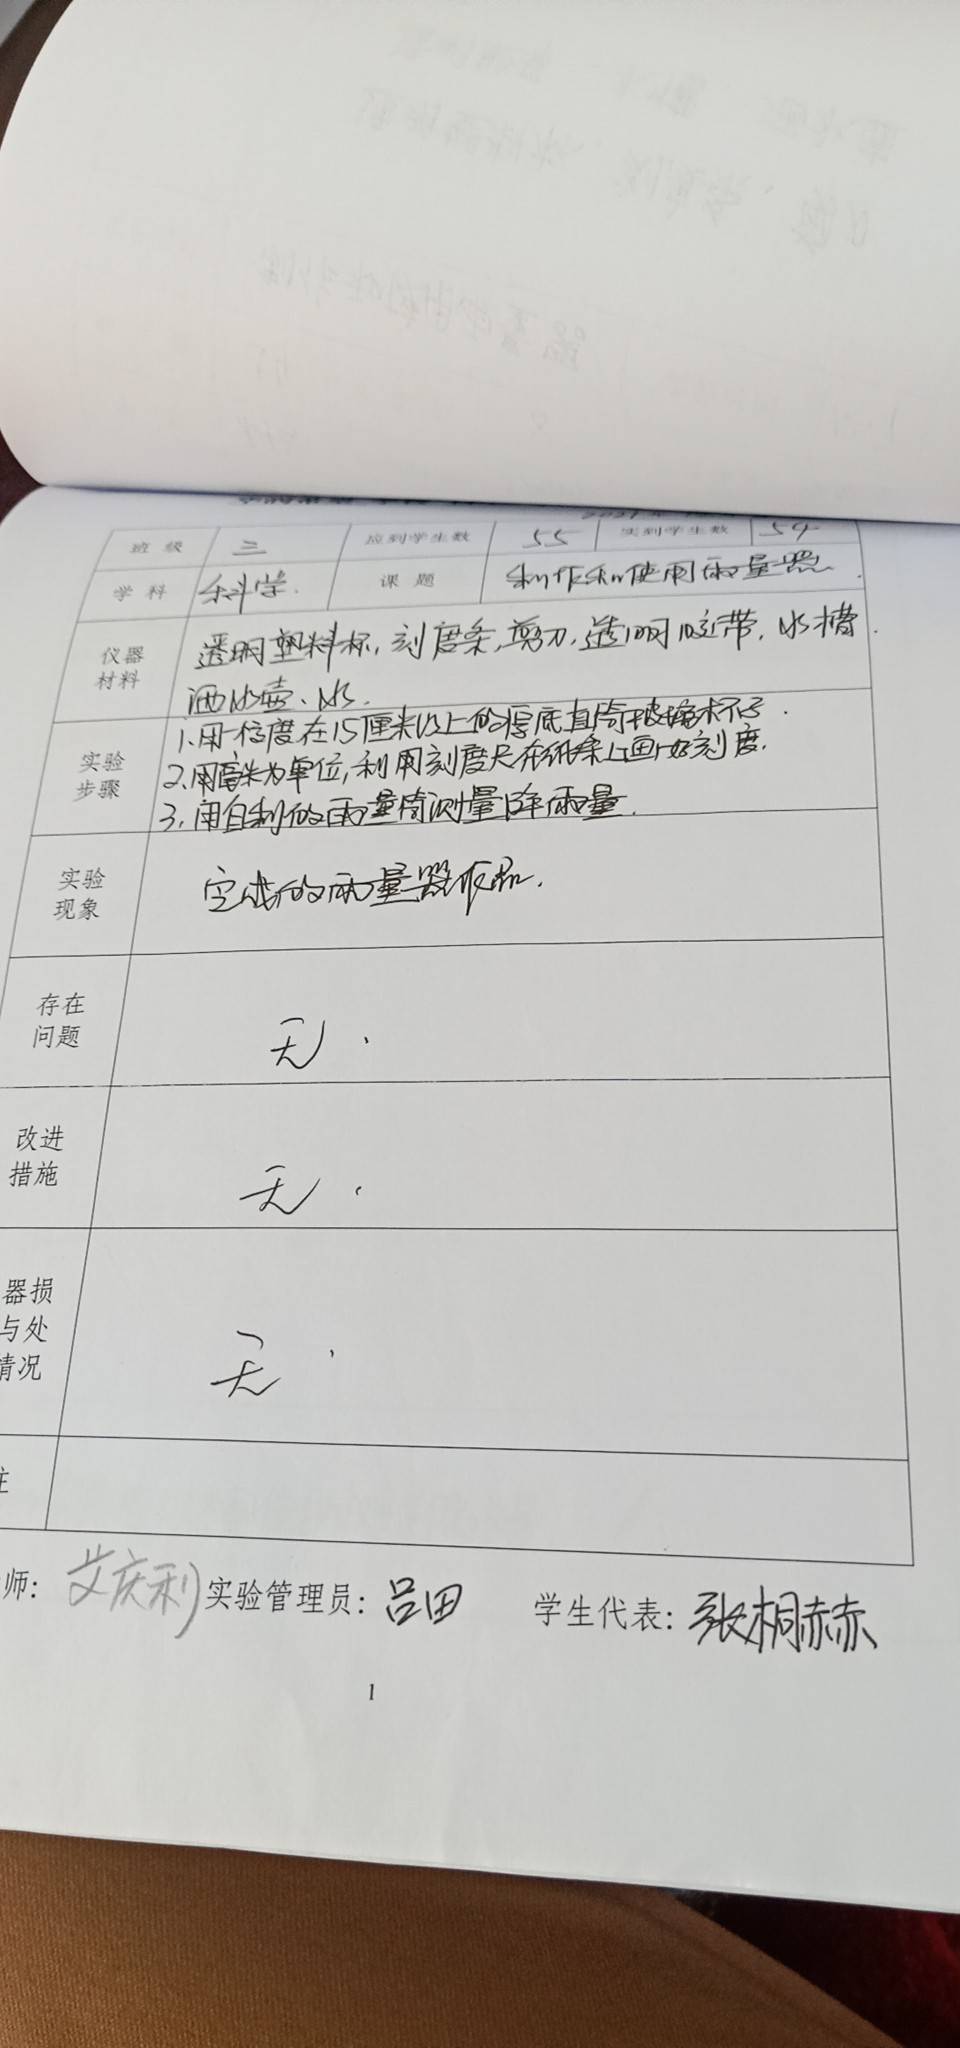 班 级 三 应到学生数 55 实到学生数 54
学 科 科学. 课 题 制作和使用雨量器.
仪器
材料
透明塑料杯, 刻度条, 剪刀, 透明胶带, 水槽.
洒水壶、水.
实验
步骤
1.用一高度在15厘米以上的厚底直筒玻璃杯子.
2.用毫米为单位,利用刻度尺在纸条上画好刻度.
3.用自制的雨量筒测量降雨量.
实验
现象
完成的雨量器作品.
存在
问题
无.
改进
措施
无.
器损
与处
情况
无.
注
师: 艾庆利 实验管理员: 吕田 学生代表: 张桐赫
1